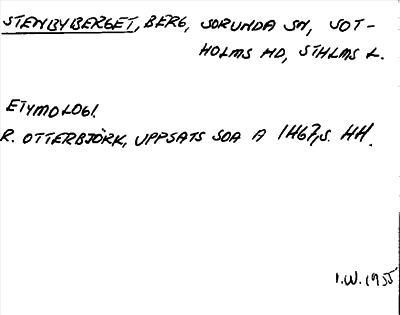 STENBYBERGET, BERG, SORUNDA SN, SOT-
HOLMS HD, STHLMS L.
ETYMOLOGI.
R. OTTERBJÖRK, UPPSATS SOA A 1467, S. 44.
I.W. 1955